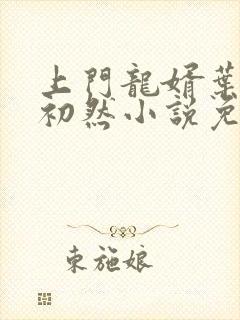 上門龍婿葉
初然小說免
東施娘